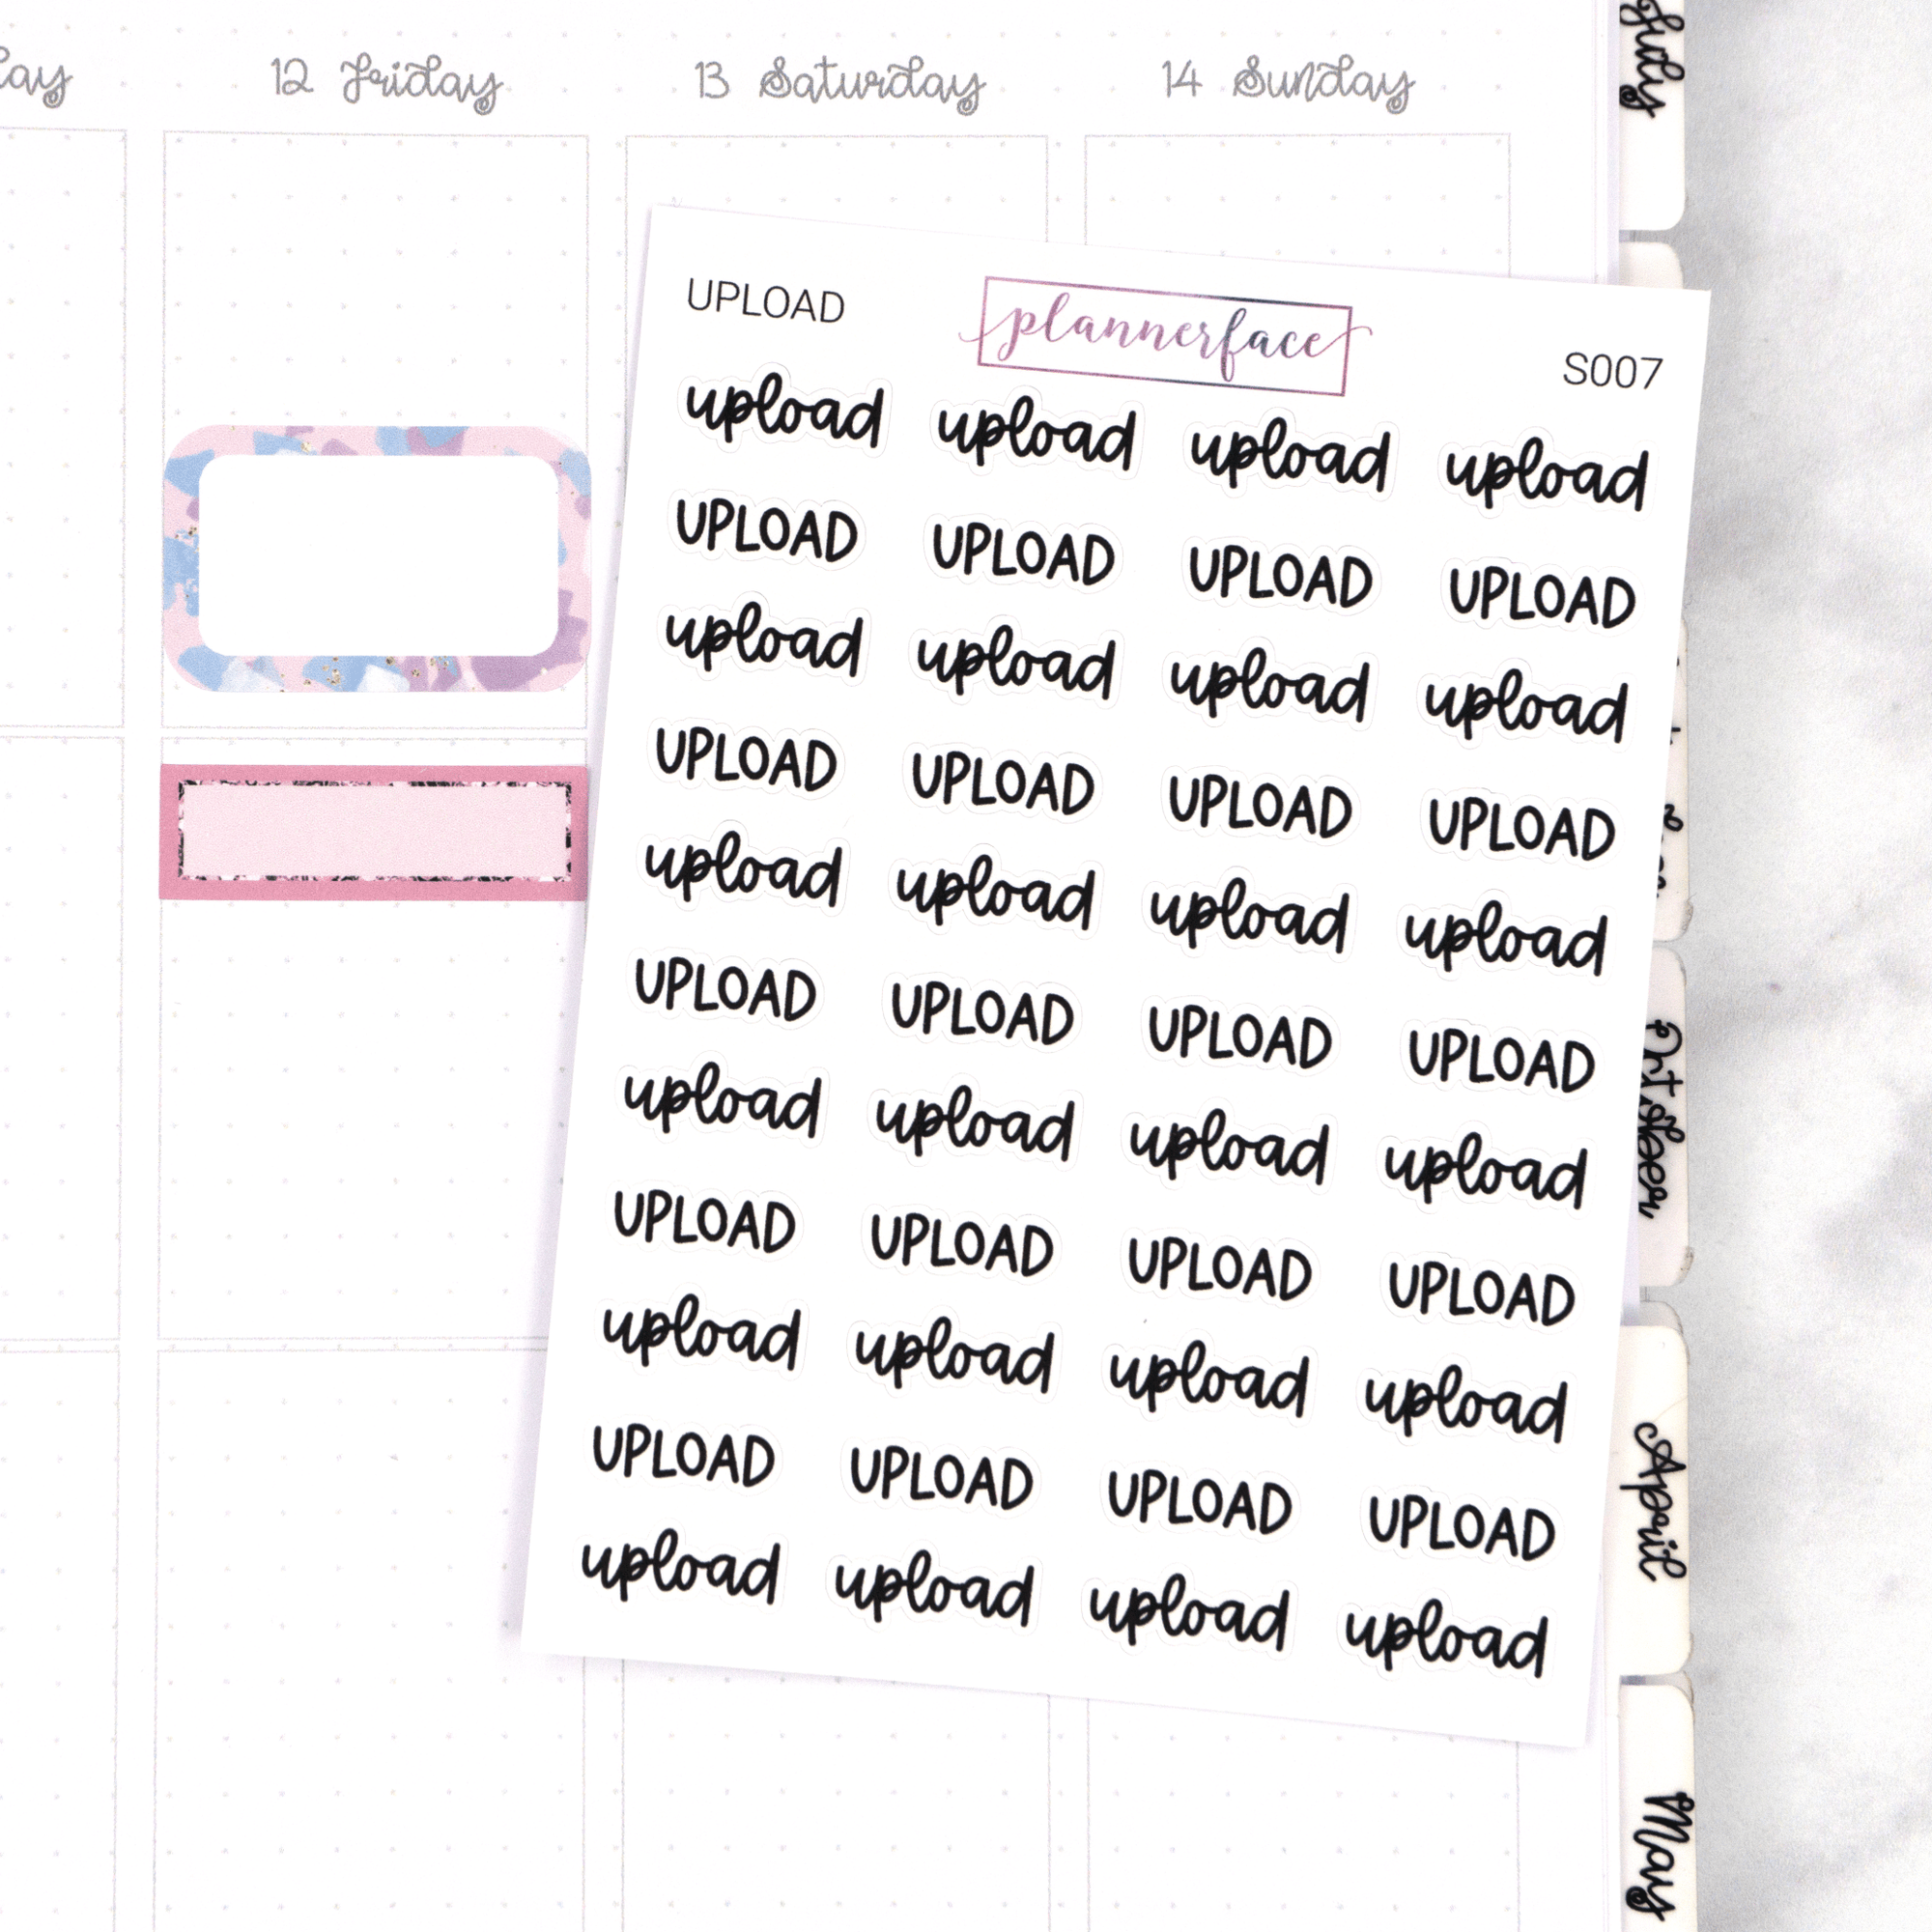 12 Friday 13 Saturday 14 Sunday
July
UPLOAD plannerface S007
upload upload upload upload
UPLOAD UPLOAD UPLOAD UPLOAD
upload upload upload upload
UPLOAD UPLOAD UPLOAD UPLOAD
upload upload upload upload
UPLOAD UPLOAD UPLOAD UPLOAD
upload upload upload upload
UPLOAD UPLOAD UPLOAD UPLOAD
upload upload upload upload
UPLOAD UPLOAD UPLOAD UPLOAD
upload upload upload upload
April
May